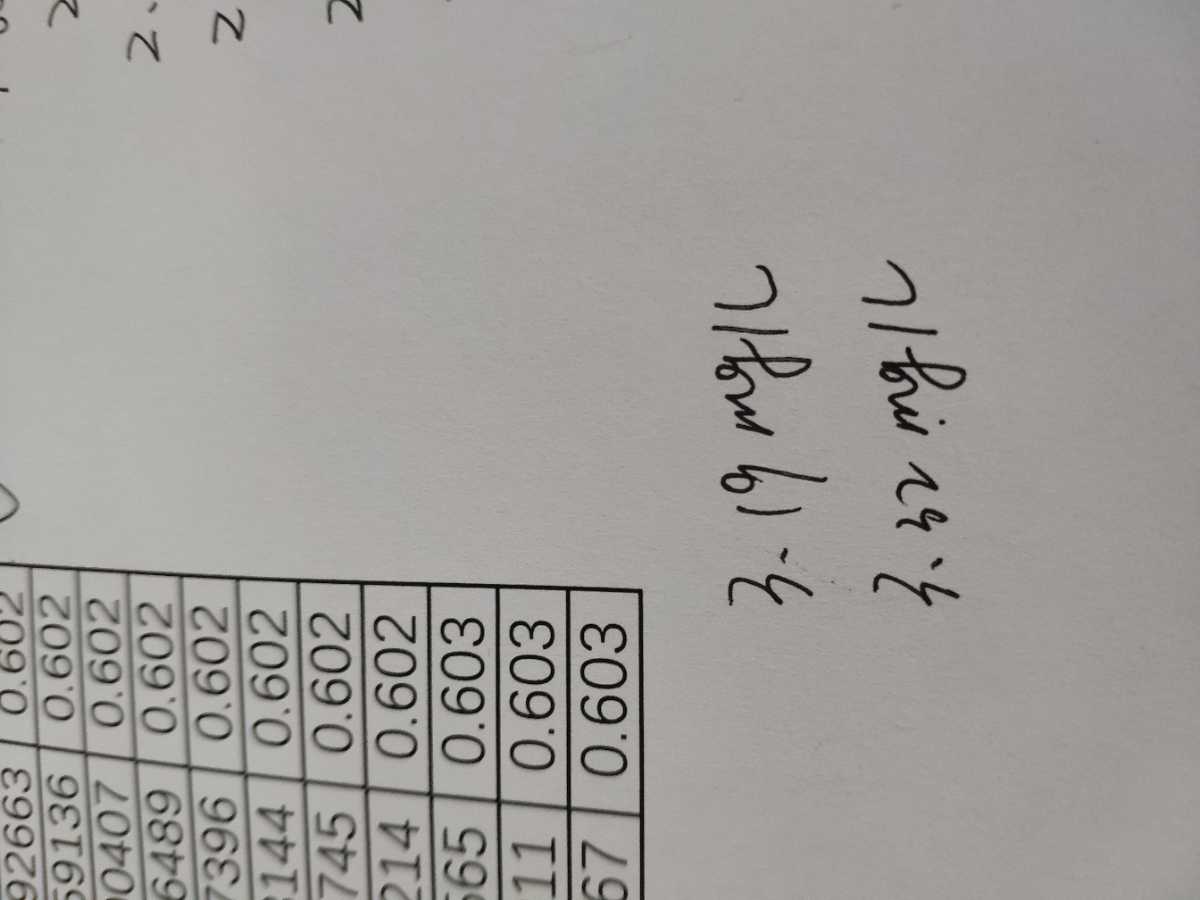 92663 0.602
59136 0.602
00407 0.602
6489 0.602
7396 0.602
3144 0.602
745 0.602
214 0.602
565 0.603
11 0.603
67 0.603
3.19 mg/L
3.32 mg/L